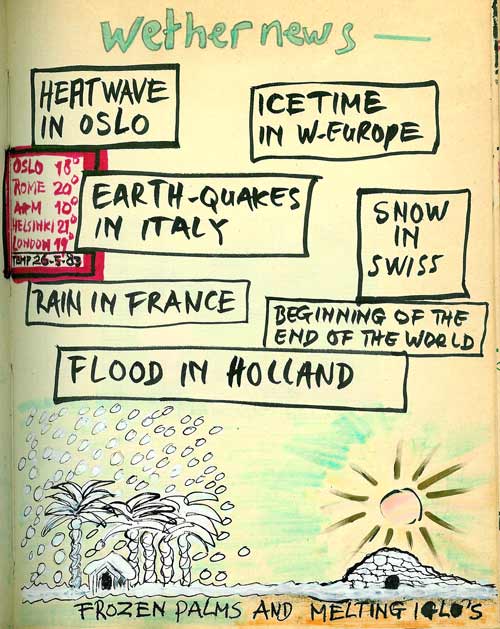 wether news —
HEATWAVE
IN OSLO
ICETIME
IN W-EUROPE
OSLO 18°
ROME 20°
A*M 10°
HELSINKI 21°
LONDON 19°
TEMP 26-5-83
EARTH-QUAKES
IN ITALY
SNOW
IN
SWISS
RAIN IN FRANCE
BEGINNING OF THE
END OF THE WORLD
FLOOD IN HOLLAND
FROZEN PALMS AND MELTING IGLO'S